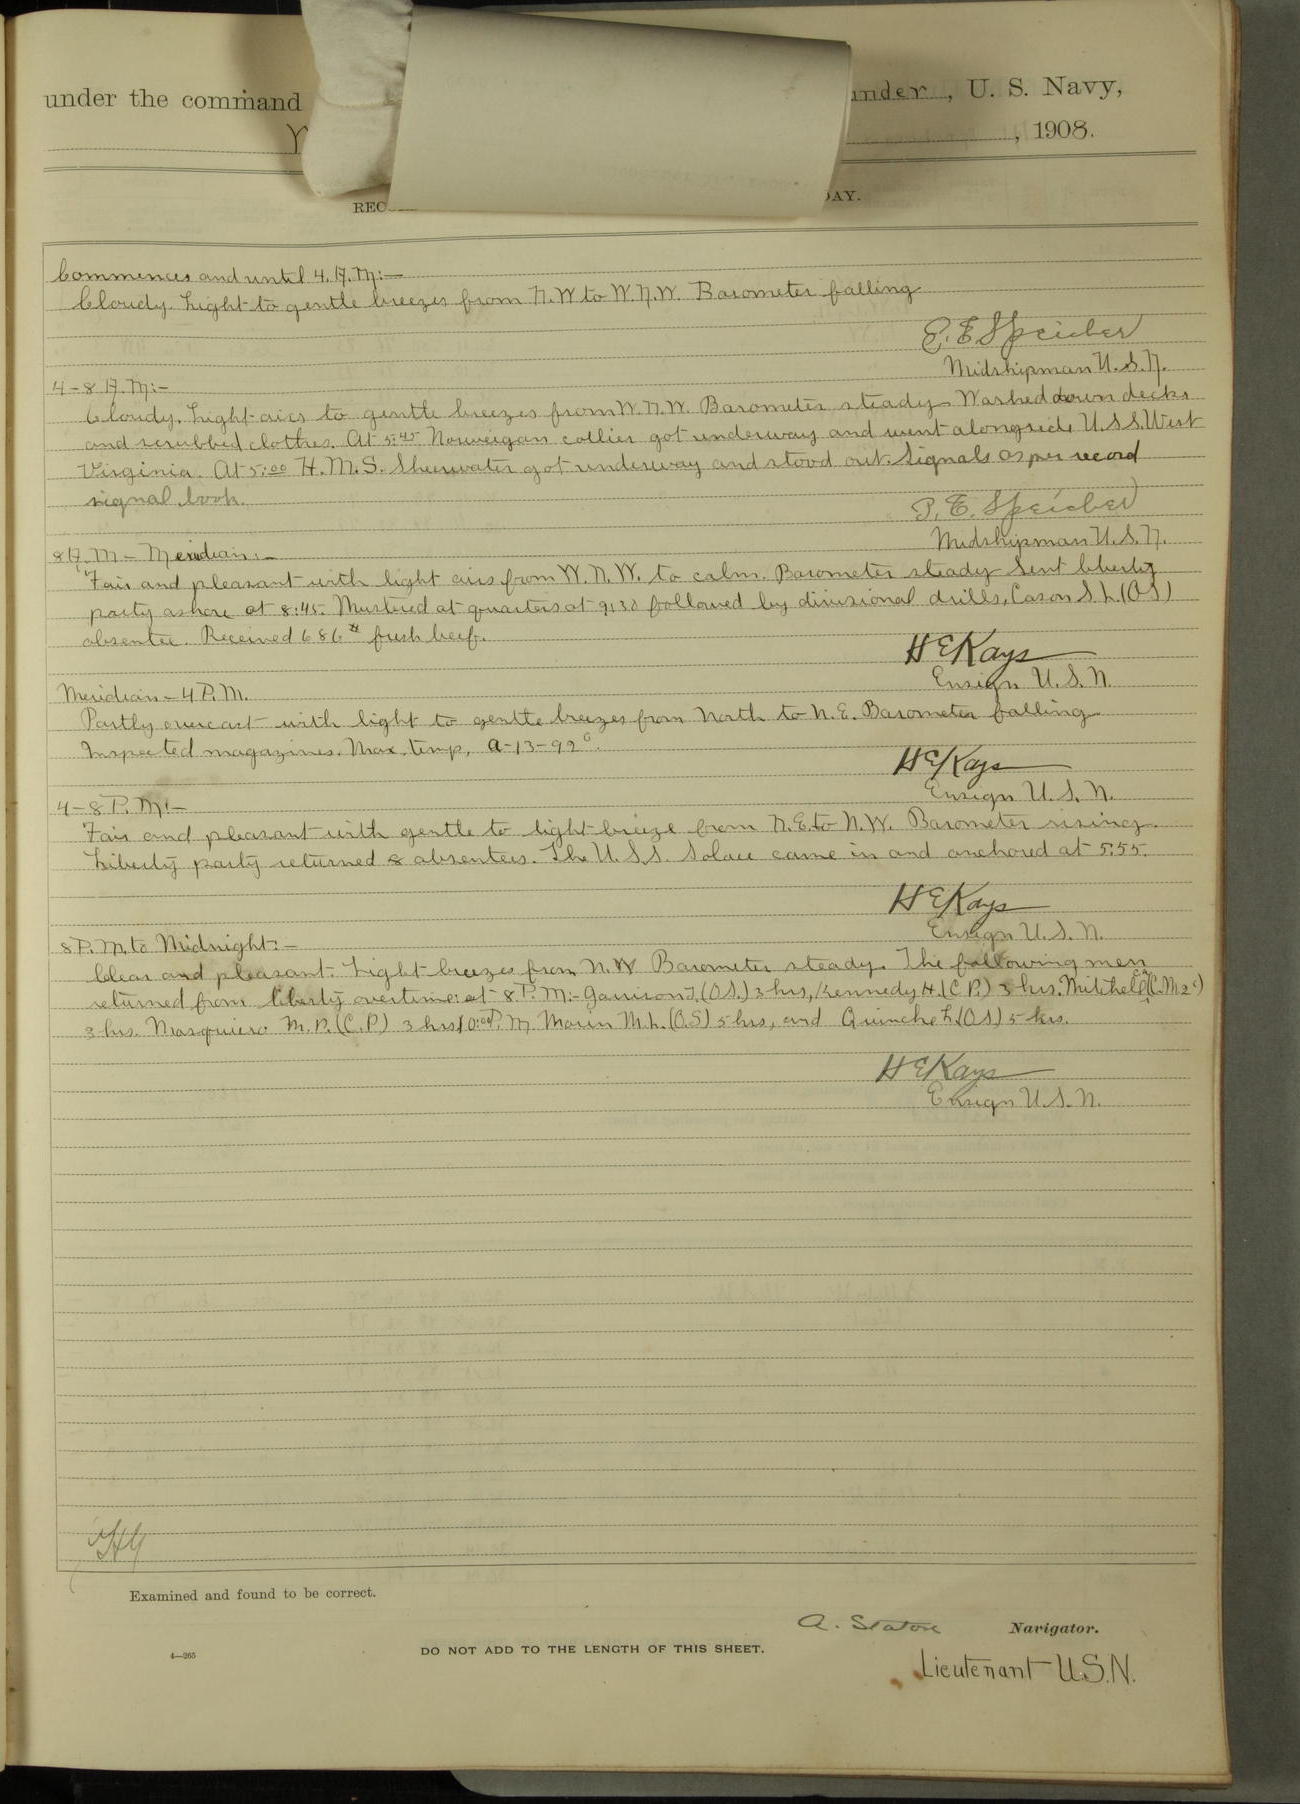 under the command under, U. S. Navy,
, 1908.
REC DAY.
Commences and until 4. A. M:—
Cloudy. Light to gentle breezes from N.W to W.N.W. Barometer falling
P. E. Speicher
Midshipman U.S.N.
4-8 A. M:-
Cloudy. Light airs to gentle breezes from W.N.W. Barometer steady. Washed down decks
and scrubbed clothes. At 5:45 Norweigan collier got underway and went alongside U.S.S. West
Virginia. At 5:00 H.M.S. Shearwater got underway and stood out. Signals as per record
signal book.
P. E. Speicher
Midshipman U.S.N.
8 A. M — Meridian:—
Fair and pleasant with light airs from W.N.W. to calm. Barometer steady Sent liberty
party ashore at 8:45. Mustered at quarters at 9:30 followed by divisional drills, Cason S. L. (OS)
absentee. Received 686# fresh beef.
H E Kays
Ensign U.S.N.
Meridian — 4 P.M.
Partly overcast with light to gentle breezes from North to N.E. Barometer falling
Inspected magazines. Max. temp, A-13-92°.
H E Kays
Ensign U.S.N.
4-8 P. M:—
Fair and pleasant with gentle to light breeze from N.E. to N.W. Barometer rising.
Liberty party returned 8 absentees. The U.S.S. Solace came in and anchored at 5:55.
H E Kays
Ensign U.S.N.
8 P. M. to Midnight:—
Clear and pleasant. Light breezes from N.W Barometer steady. The following men
returned from liberty overtime: at 8 P. M:- Garrison J. (OS.) 3 hrs, Kennedy H. (C.P.) 3 hrs. Mitchel (C.M 2c)
3 hrs. Masquiero M. P. (C.P.) 3 hrs 10:00 P. M. Morin M. L. (O.S) 5 hrs, and Quinche L. (OS) 5 hrs.
H E Kays
Ensign U.S.N.
Examined and found to be correct.
A. Staton Navigator.
4—265 DO NOT ADD TO THE LENGTH OF THIS SHEET.
Lieutenant U.S.N.